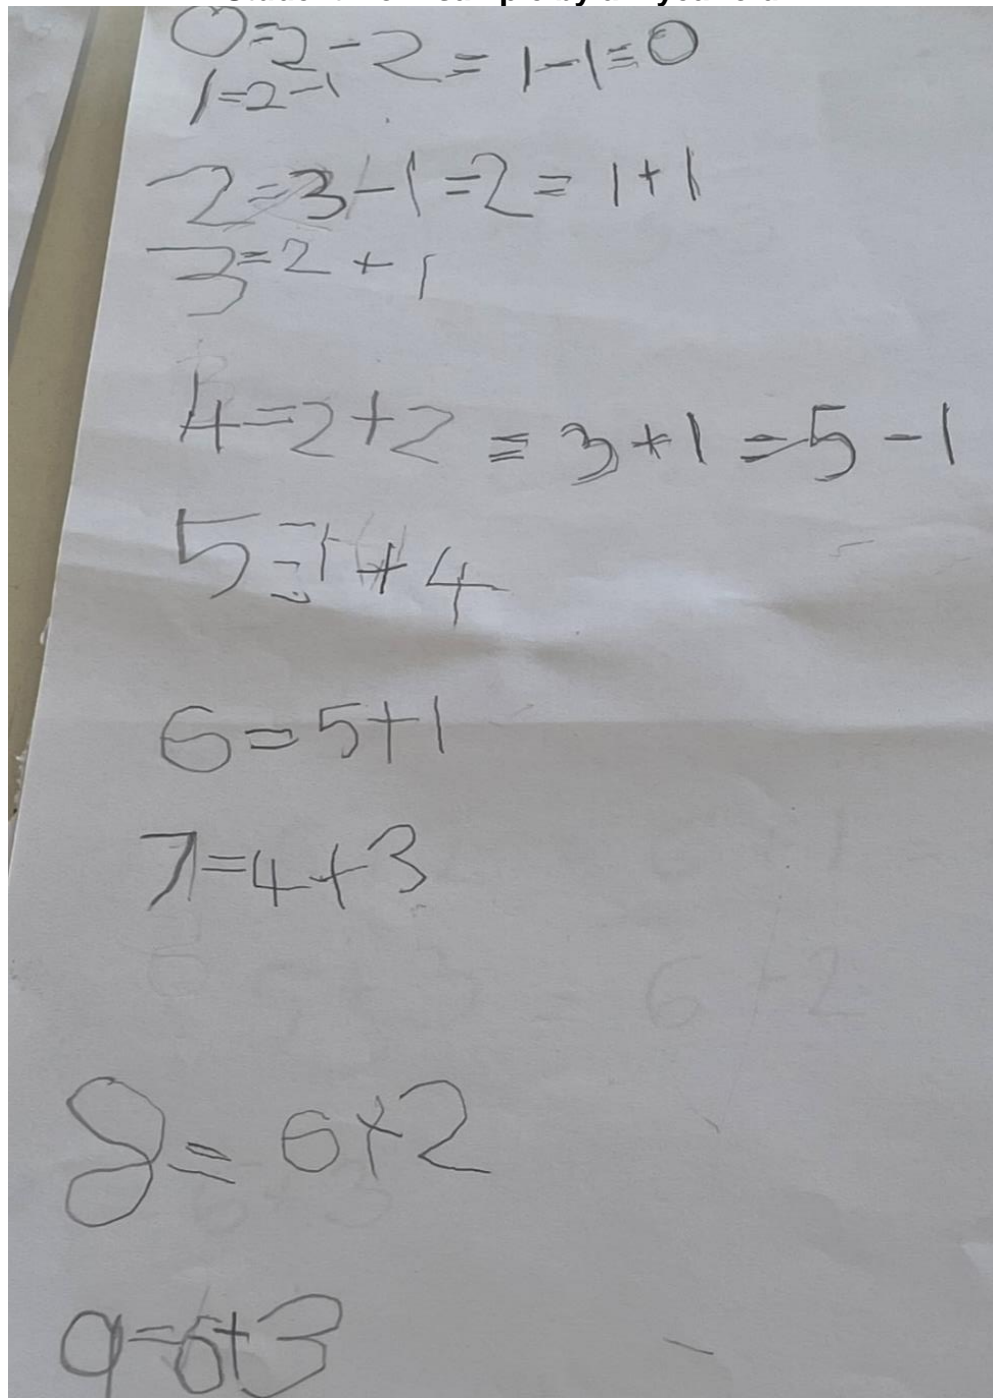 0=2-2=1-1=0
1=2-1
2=3-1=2=1+1
3=2+1
4=2+2=3+1=5-1
5=1+4
6=5+1
7=4+3
6+2
8=6+2
9=6+3